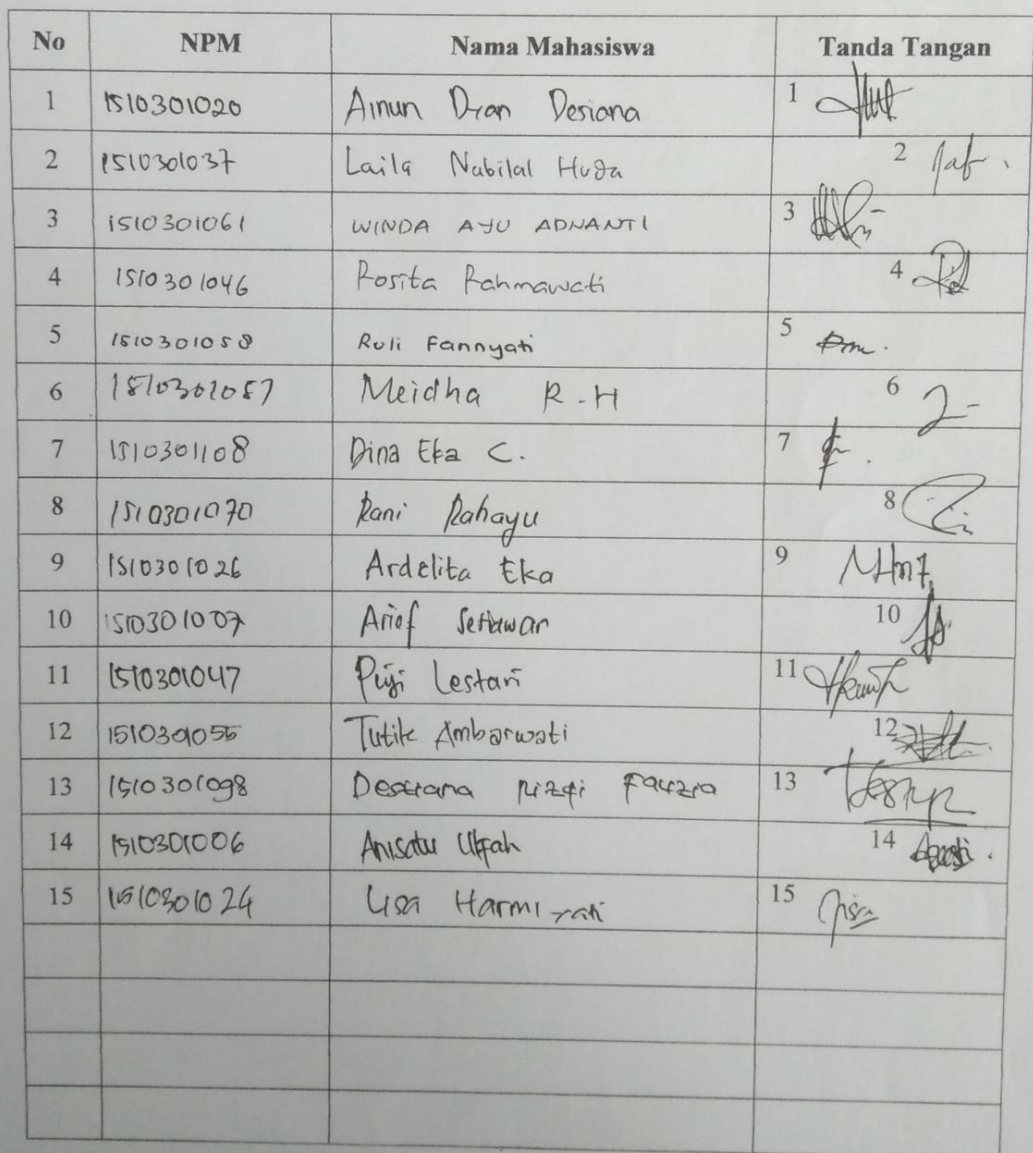 No NPM Nama Mahasiswa Tanda Tangan
1 1510301020 Ainun Dian Desiana 1
2 1510301037 Laila Nabilal Huda 2
3 1510301061 WINDA AYU ADNANTI 3
4 1510301046 Rosita Rahmawati 4
5 1510301058 Ruli Fannyati 5
6 1510301057 Meidha R-H 6
7 1510301108 Dina Eka C. 7
8 1510301070 Rani Rahayu 8
9 1510301026 Ardelita Eka 9
10 1510301007 Arief Setiawan 10
11 1510301047 Puji Lestari 11
12 1510301055 Tutik Ambarwati 12
13 1510301098 Destiana Rizqi Fauzia 13
14 1510301006 Anisatu Ulfah 14
15 1510301024 Lisa Harmiyati 15